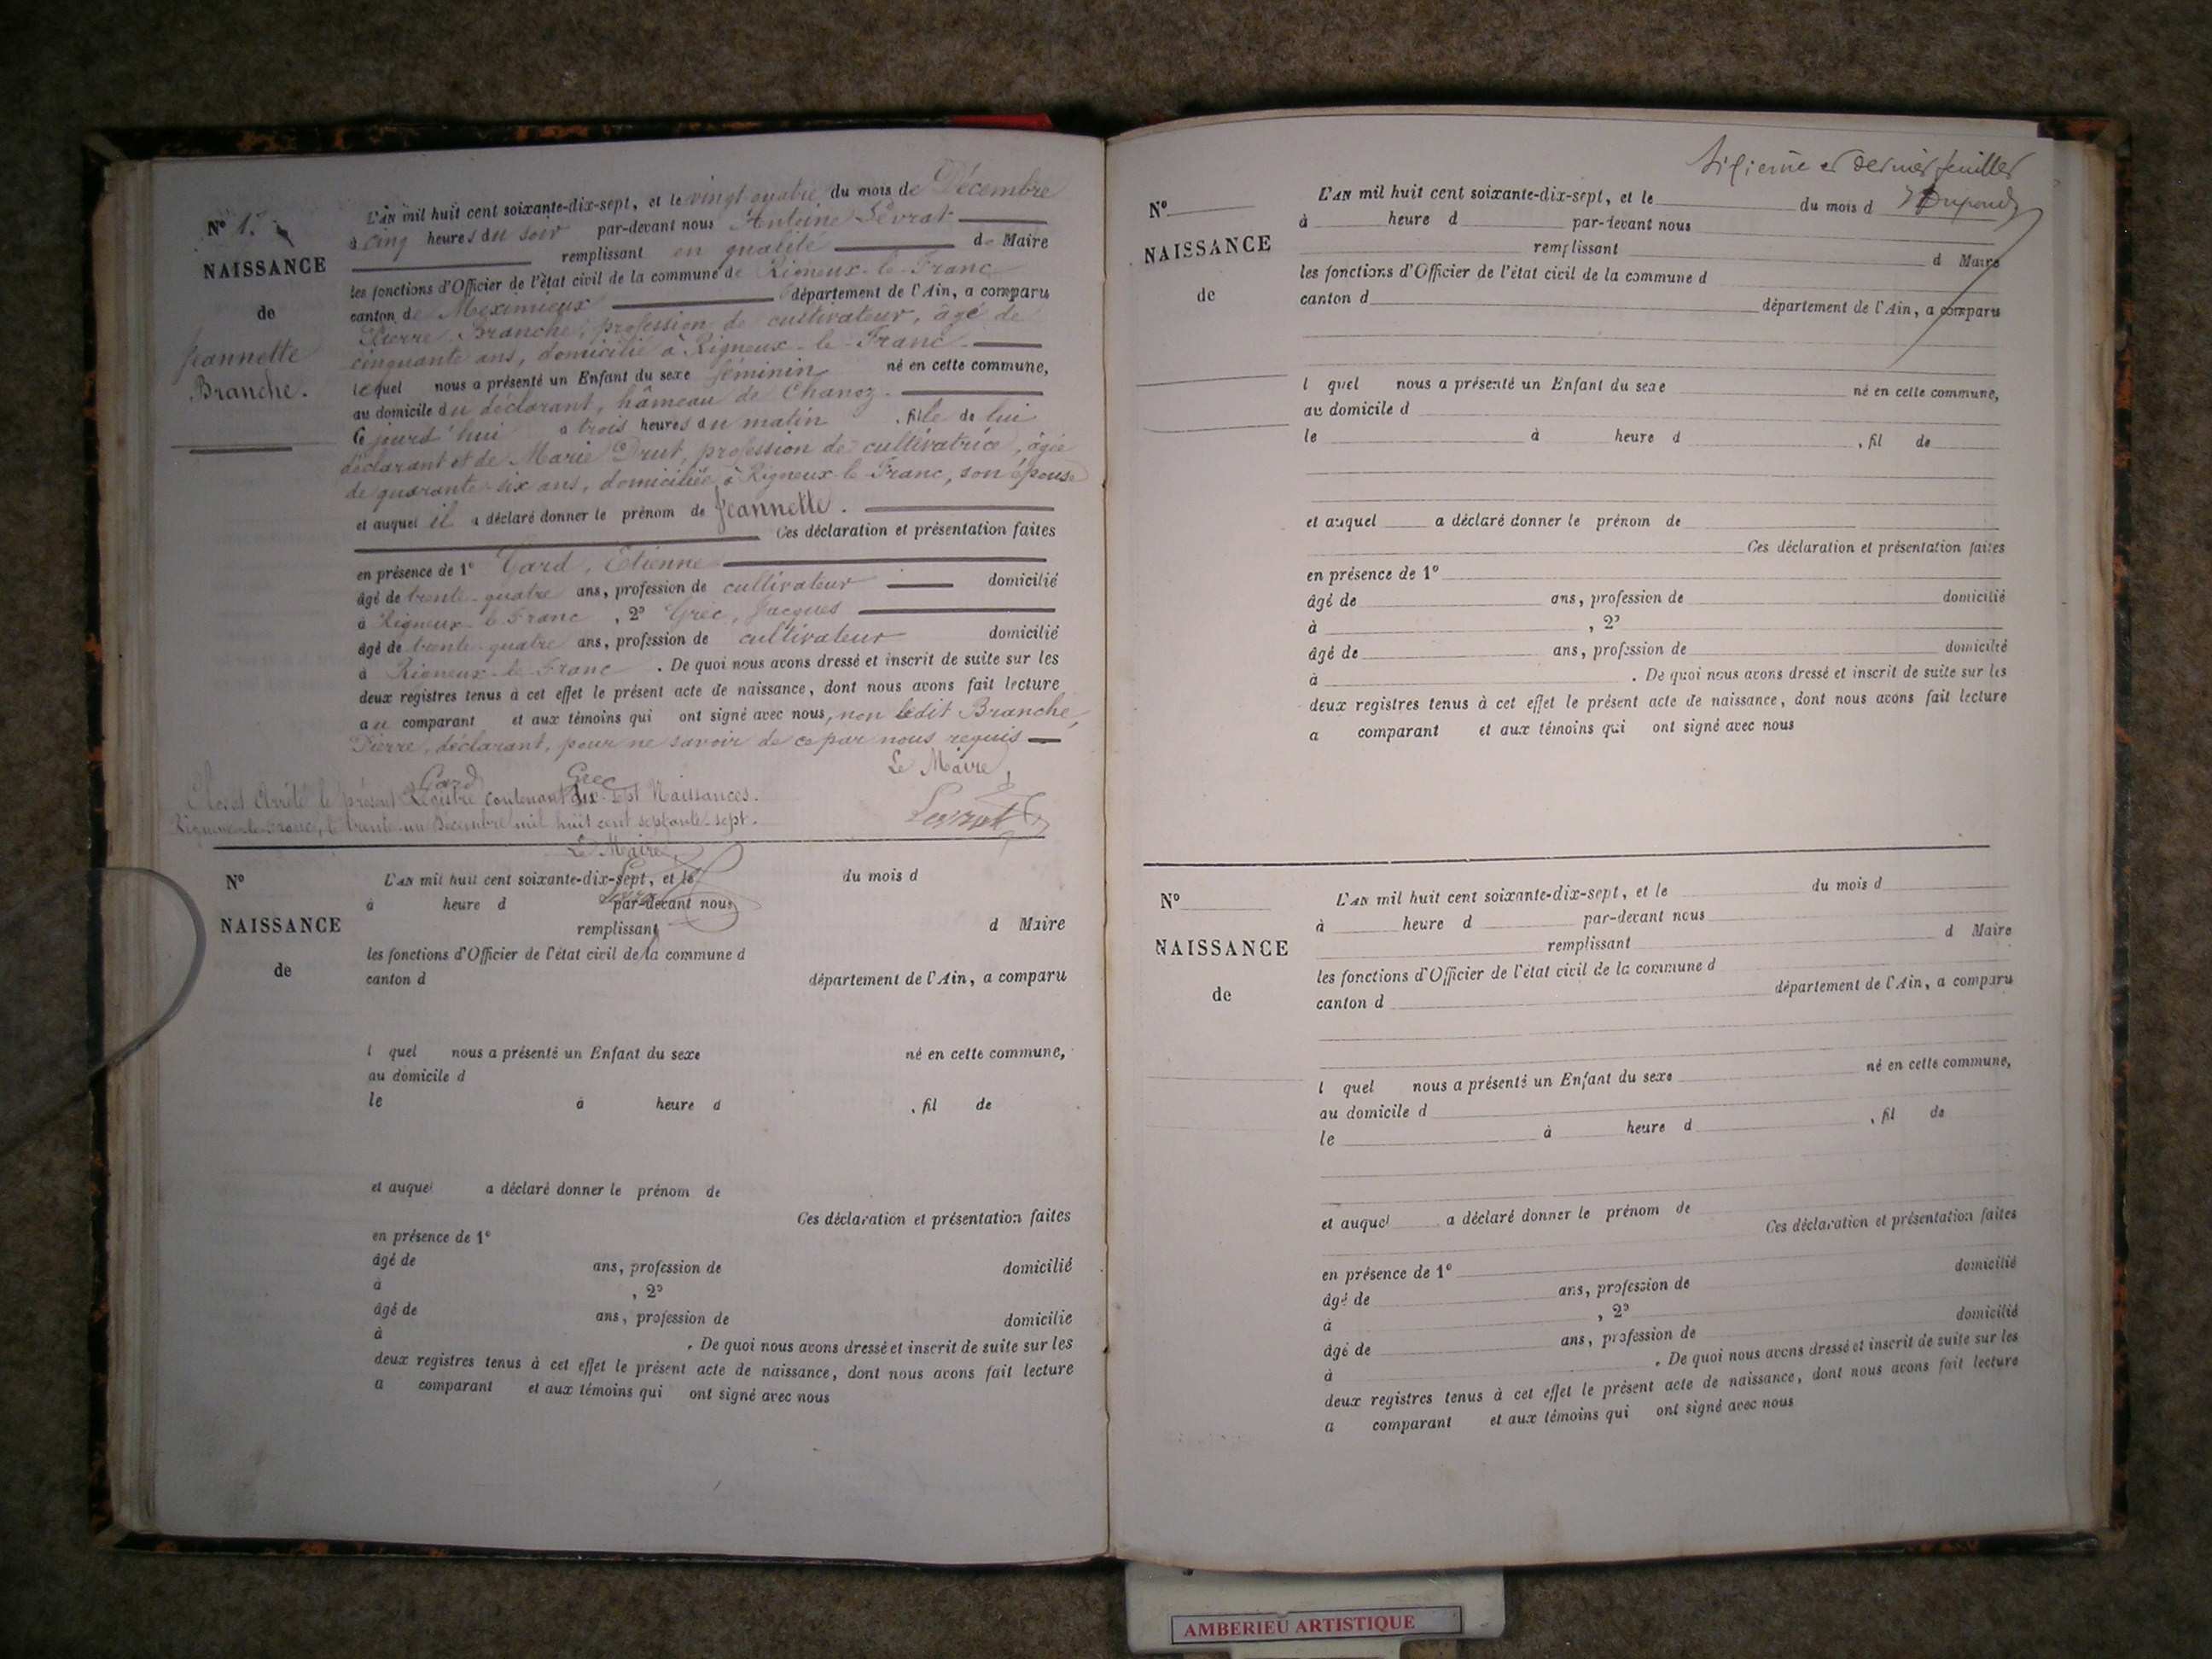 L'AN mil huit cent soixante-dix-sept, et le vingt-quatre du mois de Décembre
N° 17.
à cinq heures du soir par-devant nous Antoine Levrat
NAISSANCE
remplissant en qualité de Maire
les fonctions d'Officier de l'état civil de la commune de Rigneux-le-Franc
de
canton de Meximieux département de l'Ain, a comparu
Pierre Branche, profession de cultivateur, âgé de
Jeannette
cinquante ans, domicilié à Rigneux-le-Franc
Branche.
lequel nous a présenté un Enfant du sexe féminin né en cette commune,
au domicile du déclarant, hâmeau de Chanoz.
Ce jourd'hui à trois heures du matin, fille de lui
déclarant et de Marie Drut, profession de cultivatrice, âgée
de quarante-six ans, domiciliée à Rigneux-le-Franc, son épouse
et auquel il a déclaré donner le prénom de Jeannette.
Ces déclaration et présentation faites
en présence de 1° Gard, Etienne
âgé de trente-quatre ans, profession de cultivateur domicilié
à Rigneux-le-Franc, 2° Grec, Jacques
âgé de trente-quatre ans, profession de cultivateur domicilié
à Rigneux-le-Franc. De quoi nous avons dressé et inscrit de suite sur les
deux registres tenus à cet effet le présent acte de naissance, dont nous avons fait lecture
au comparant et aux témoins qui ont signé avec nous, non ledit Branche,
Pierre, déclarant, pour ne savoir de ce par nous requis
Le Maire,
Gard Grec
Clos et Arrêté le présent Registre contenant dix-sept Naissances.
Levrat
Rigneux-le-Franc, le trente-un Décembre mil huit cent septante-sept.
Le Maire
Levrat
N° L'AN mil huit cent soixante-dix-sept, et le du mois d
à heure d par-devant nous
NAISSANCE
remplissant d Maire
les fonctions d'Officier de l'état civil de la commune d
de
canton d département de l'Ain, a comparu
l quel nous a présenté un Enfant du sexe né en cette commune,
au domicile d
le à heure d , fil de
et auquel a déclaré donner le prénom de
Ces déclaration et présentation faites
en présence de 1°
âgé de ans, profession de domicilié
à , 2°
âgé de ans, profession de domicilié
à . De quoi nous avons dressé et inscrit de suite sur les
deux registres tenus à cet effet le présent acte de naissance, dont nous avons fait lecture
a comparant et aux témoins qui ont signé avec nous
et dernier feuillet
L'AN mil huit cent soixante-dix-sept, et le du mois d
N°
à heure d par-devant nous
NAISSANCE
remplissant d Maire
les fonctions d'Officier de l'état civil de la commune d
de
canton d département de l'Ain, a comparu
l quel nous a présenté un Enfant du sexe né en cette commune,
au domicile d
le à heure d , fil de
et auquel a déclaré donner le prénom de
Ces déclaration et présentation faites
en présence de 1°
âgé de ans, profession de domicilié
à , 2°
âgé de ans, profession de domicilié
à . De quoi nous avons dressé et inscrit de suite sur les
deux registres tenus à cet effet le présent acte de naissance, dont nous avons fait lecture
a comparant et aux témoins qui ont signé avec nous
N° L'AN mil huit cent soixante-dix-sept, et le du mois d
à heure d par-devant nous
NAISSANCE
remplissant d Maire
les fonctions d'Officier de l'état civil de la commune d
de
canton d département de l'Ain, a comparu
l quel nous a présenté un Enfant du sexe né en cette commune,
au domicile d
le à heure d , fil de
et auquel a déclaré donner le prénom de
Ces déclaration et présentation faites
en présence de 1°
âgé de ans, profession de domicilié
à , 2°
âgé de ans, profession de domicilié
à . De quoi nous avons dressé et inscrit de suite sur les
deux registres tenus à cet effet le présent acte de naissance, dont nous avons fait lecture
a comparant et aux témoins qui ont signé avec nous
AMBERIEU ARTISTIQUE